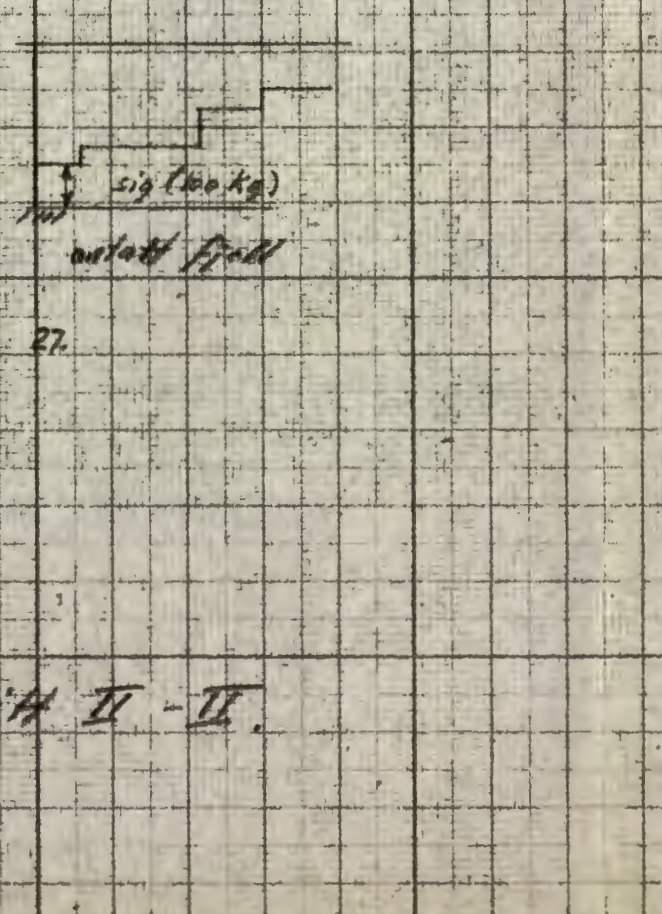 sig (100 kg)
antatt fjell
27.
II - II.